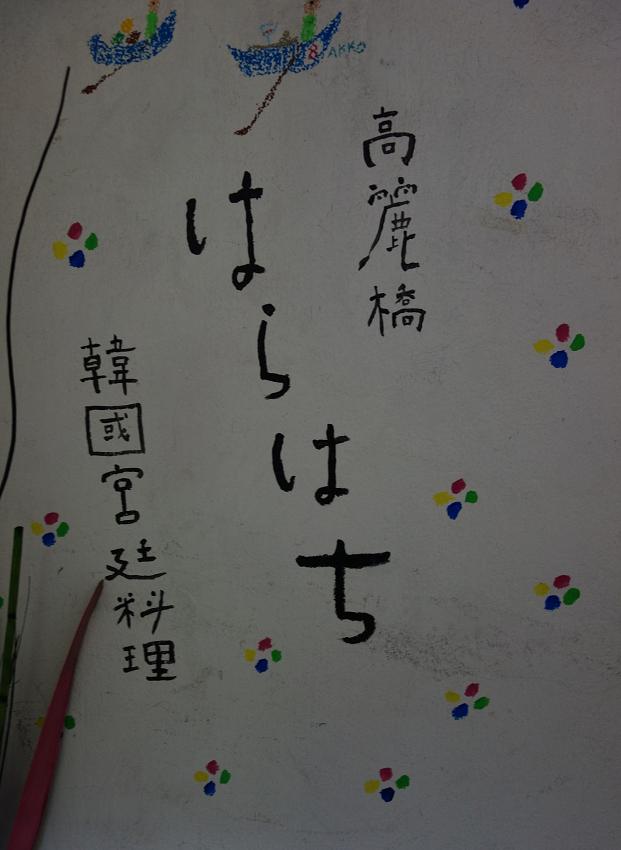 高麗橋
はらはち
韓國宮廷料理
AKKO